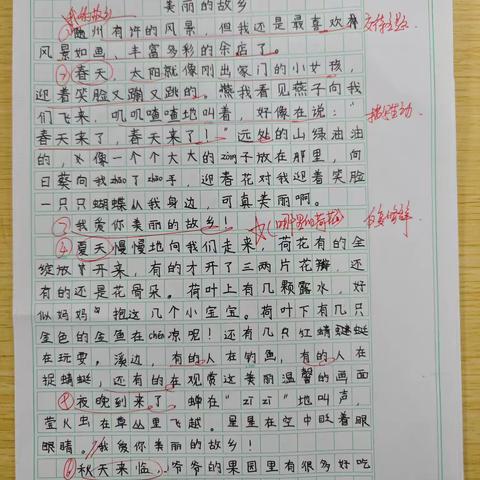 美丽的故乡
随州有许的风景,但我还是最喜欢
风景如画,丰富多彩的余店了。
春天,太阳就像刚出家门的小女孩,
迎着笑脸又蹦又跳的。燕我看见燕子向我
们飞来,叽叽喳喳地叫着,好像在说:“
春天来了,春天来了!”远处的山绿油油
的,像一个个大大的zòng子放在那里,向
日葵向我zhāo了zhāo手,迎春花对我迎着笑脸
一只只蝴蝶从我身边,可真美丽啊。
我爱你美丽的故乡!
夏天慢慢地向我们走来,荷花有的全
绽放开来,有的才开了三两片花瓣,还
有的还是花骨朵。荷叶上有几颗露水,好
似妈妈抱这几个小宝宝。荷叶下有几只
金色的金鱼在chéng凉呢!还有几只红蜻蜓
在玩耍,溪边,有的人在钓鱼,有的人在
捉蜻蜓,还有的在观赏这美丽温馨的画面
夜晚到来了,蝉在“zī zī”地叫声,
萤火虫在草丛里飞越。星星在空中眨着眼
眼睛。我爱你美丽的故乡!
秋天来临,爷爷的果园里有很多好吃